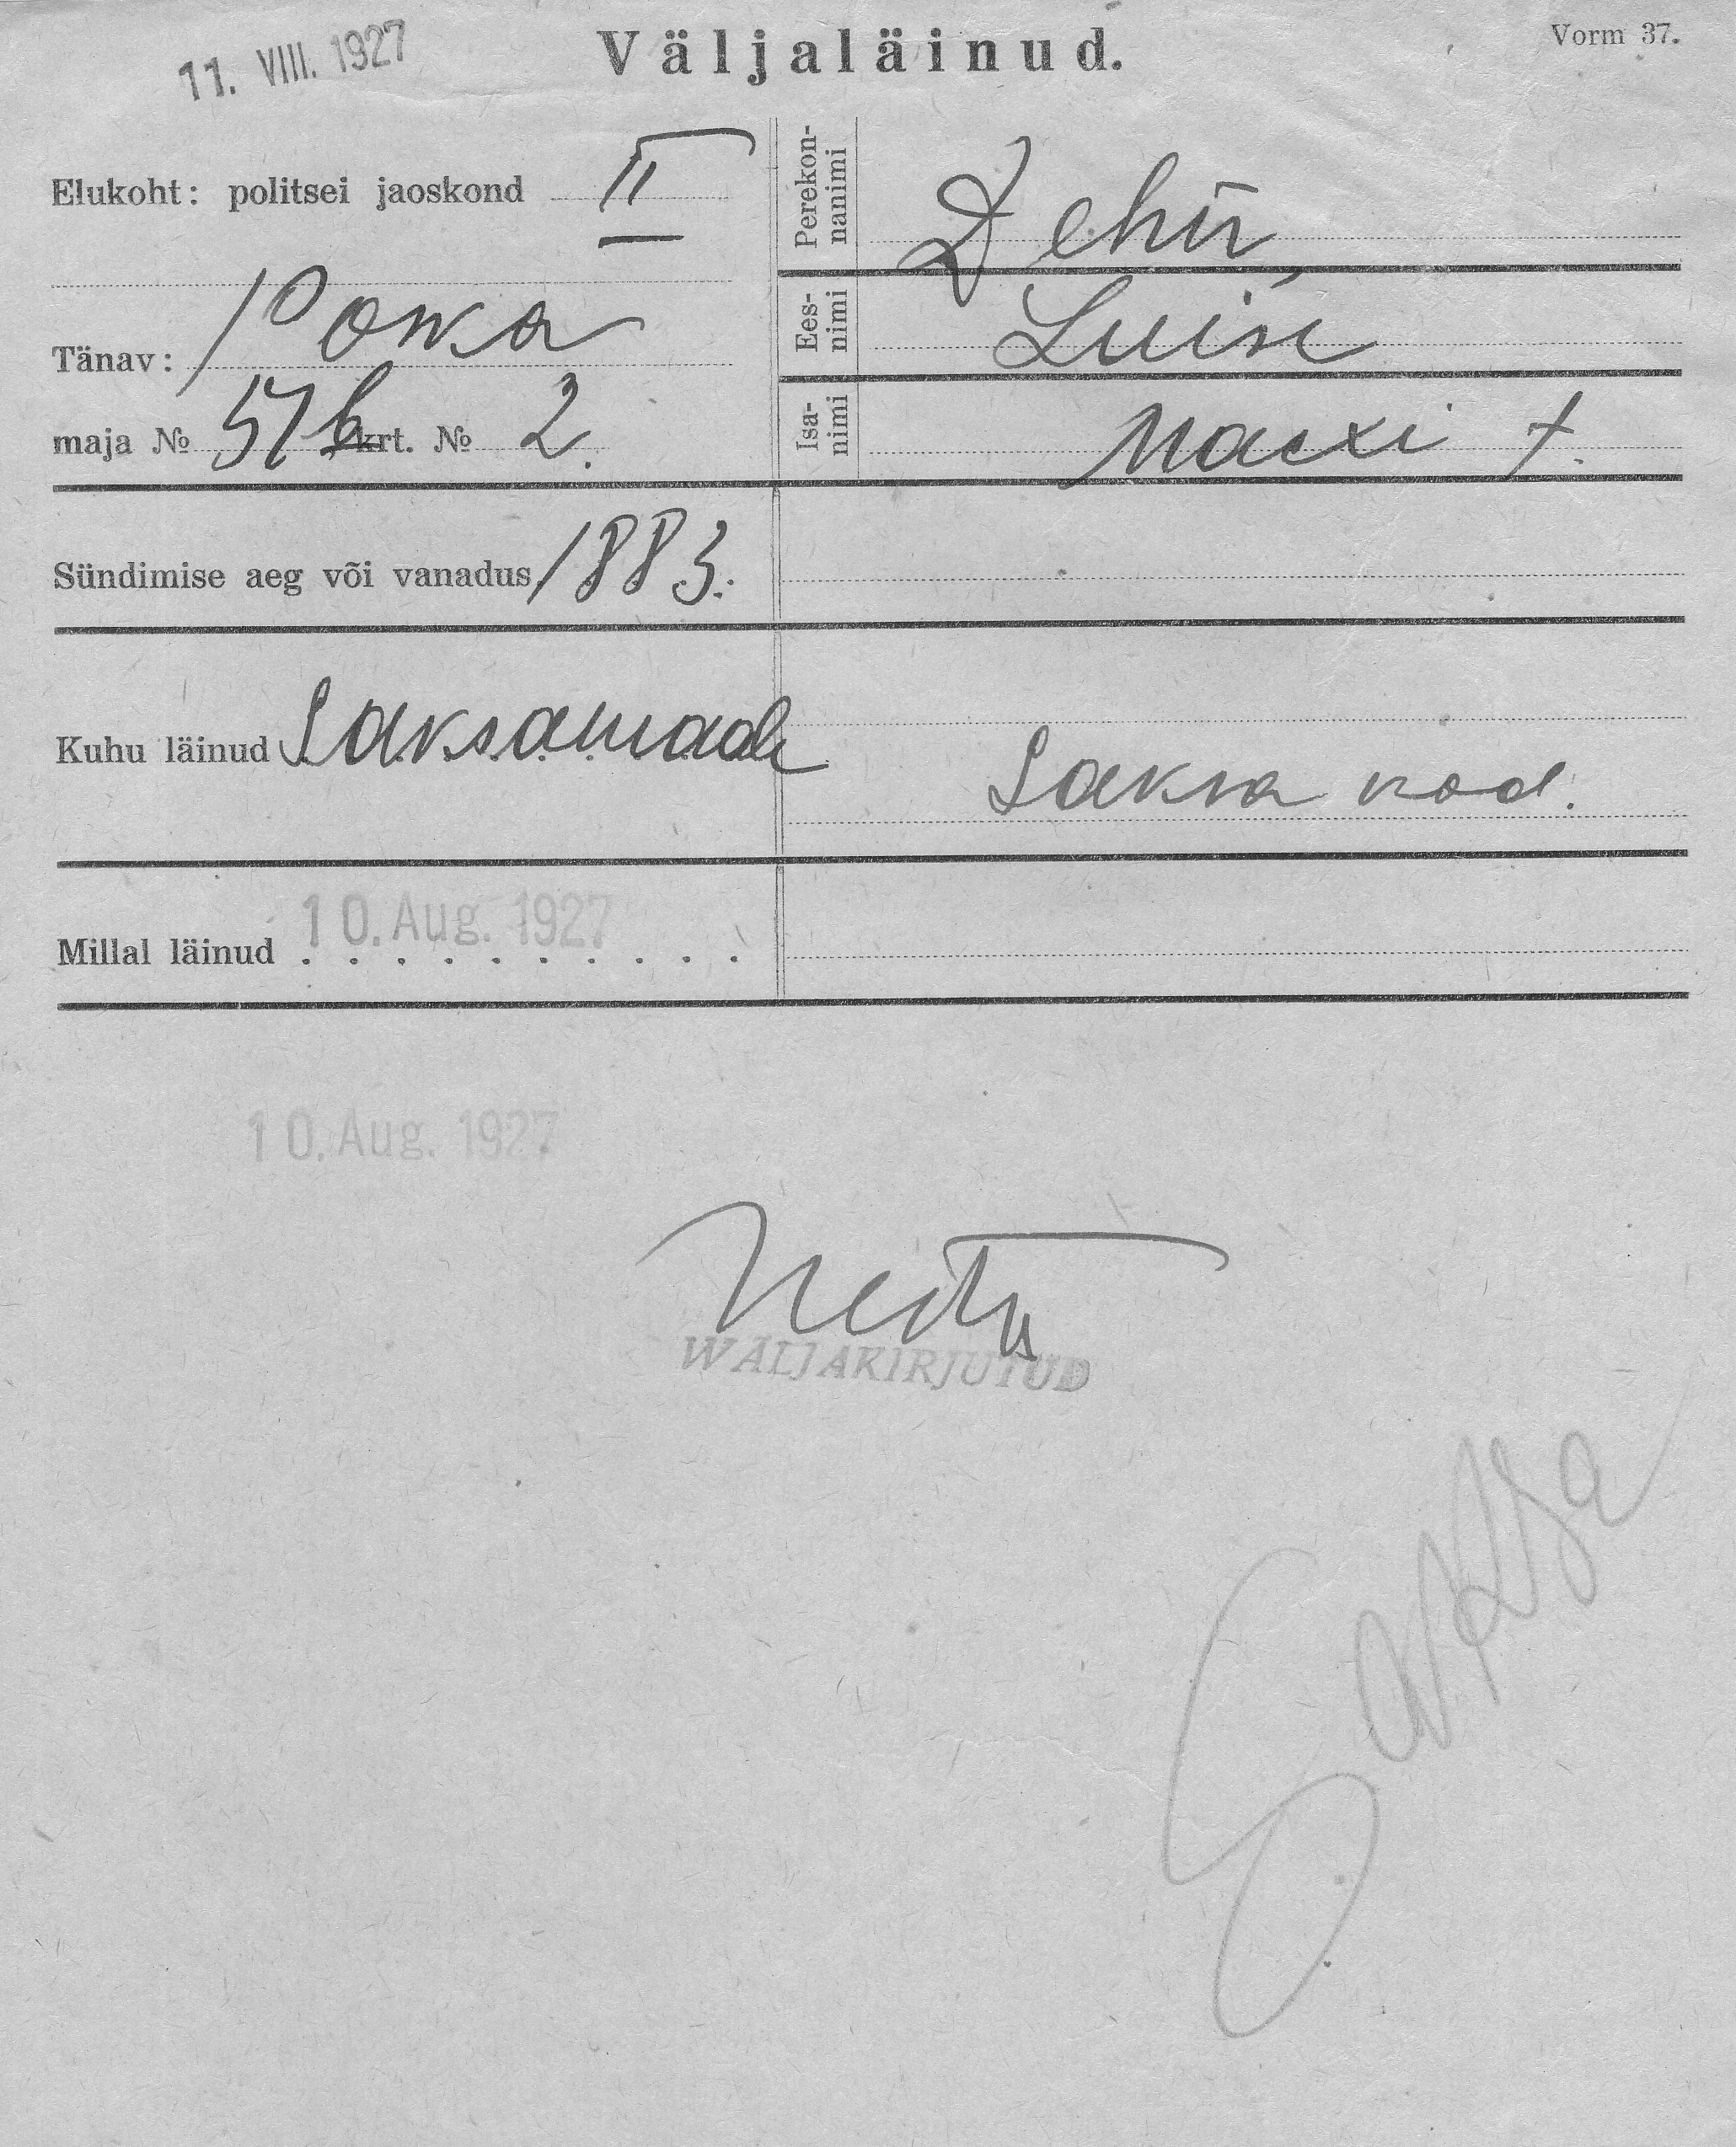 11. VIII. 1927
Väljaläinud.
Vorm 37.
Elukoht: politsei jaoskond II
Tänav: Poska
maja № 51 b krt. № 2.
Perekonnanimi Dehn,
Eesnimi Luise
Isanimi Maxi t.
Sündimise aeg või vanadus 1883.
Kuhu läinud Saksamaale
Saksa kod.
Millal läinud 10. Aug. 1927
10. Aug. 1927
WÄLJAKIRJUTUD
Saksa